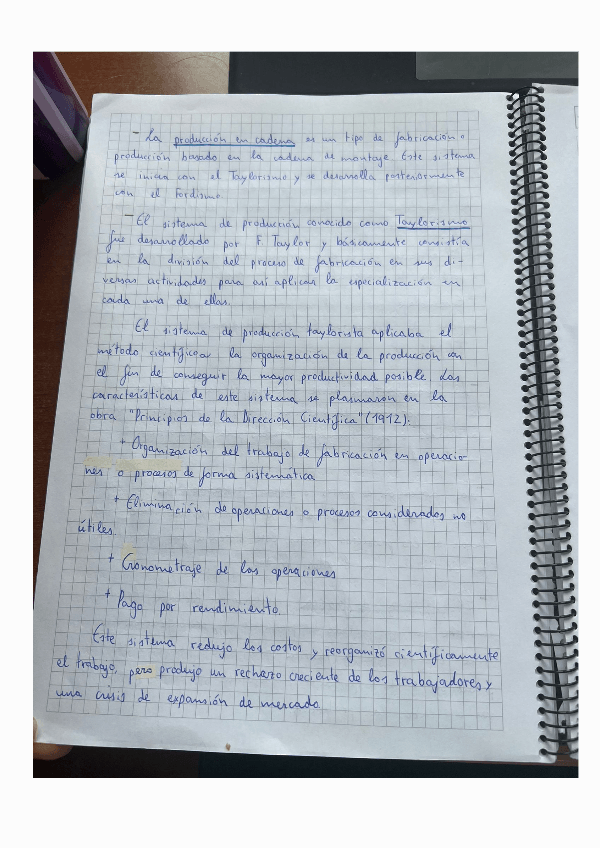 - La producción en cadena es un tipo de fabricación o
producción basado en la cadena de montaje. Este sistema
se inicia con el Taylorismo y se desarrolla posteriormente
con el Fordismo.
- El sistema de producción conocido como Taylorismo
fue desarrollado por F. Taylor y básicamente consistía
en la división del proceso de fabricación en sus di-
versas actividades para así aplicar la especialización en
cada una de ellas.
El sistema de producción taylorista aplicaba el
método científico a la organización de la producción con
el fin de conseguir la mayor productividad posible. Las
características de este sistema se plasmaron en la
obra "Principios de la Dirección Científica" (1912):
+ Organización del trabajo de fabricación en operacio-
nes o procesos de forma sistemática
+ Eliminación de operaciones o procesos considerados no
útiles.
+ Cronometraje de las operaciones
+ Pago por rendimiento.
Este sistema redujo los costos y reorganizó científicamente
el trabajo, pero produjo un rechazo creciente de los trabajadores y
una crisis de expansión de mercado.